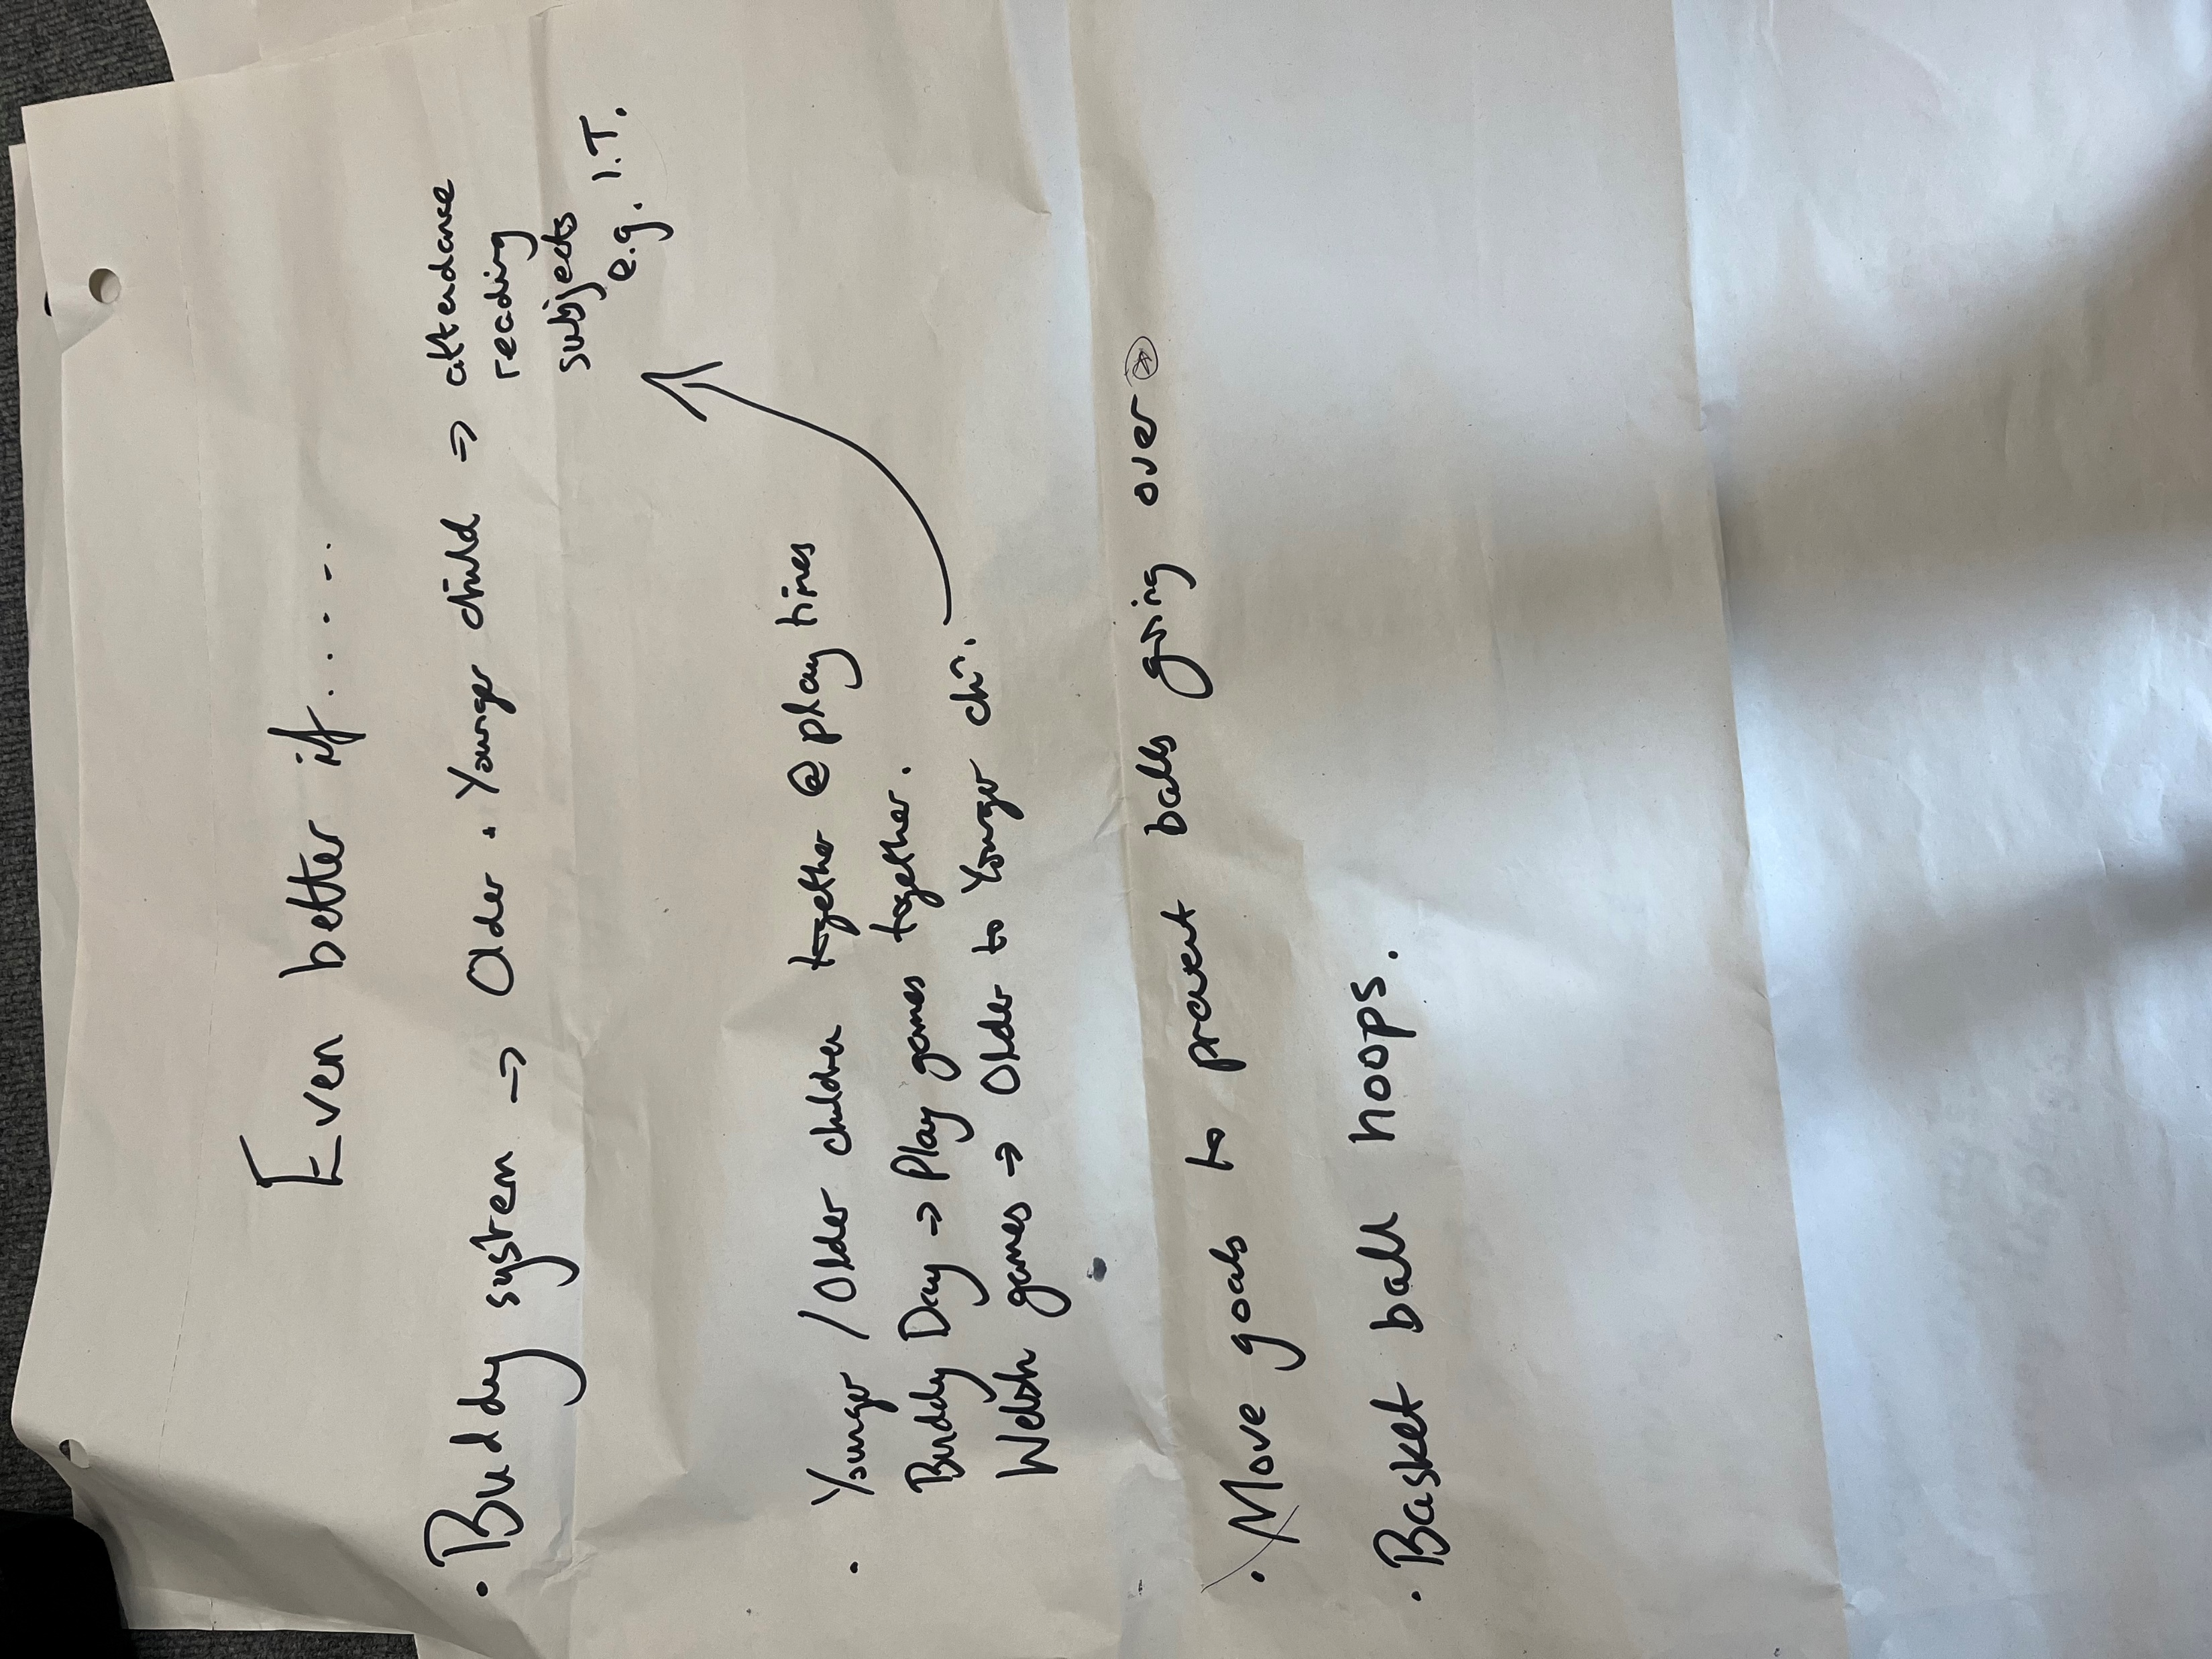 Even better if......
• Buddy system → Older + Younger child ⇒ attendance
reading
subjects
e.g. I.T.
• Younger / Older children together @ play times
Buddy Day → Play games together.
Welsh games → Older to Younger chn.
• Move goals to prevent balls going over
• Basket ball hoops.